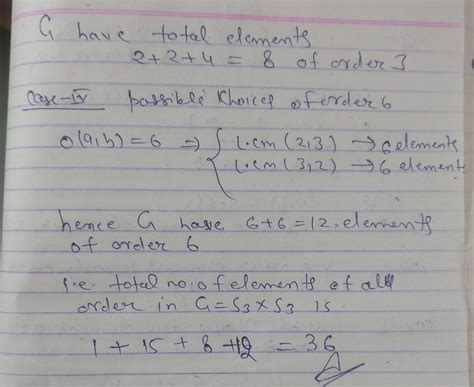 G have total elements
2+2+4 = 8 of order 3
Case-IV possible choices of order 6
o(a,b)=6 ⇒ { l.cm (2,3) → 6 elements
l.cm (3,2) → 6 element
hence G have 6+6=12. elements
of order 6
i.e. total no. of elements of all
order in G=S3×S3 is
1 + 15 + 8 +12 = 36